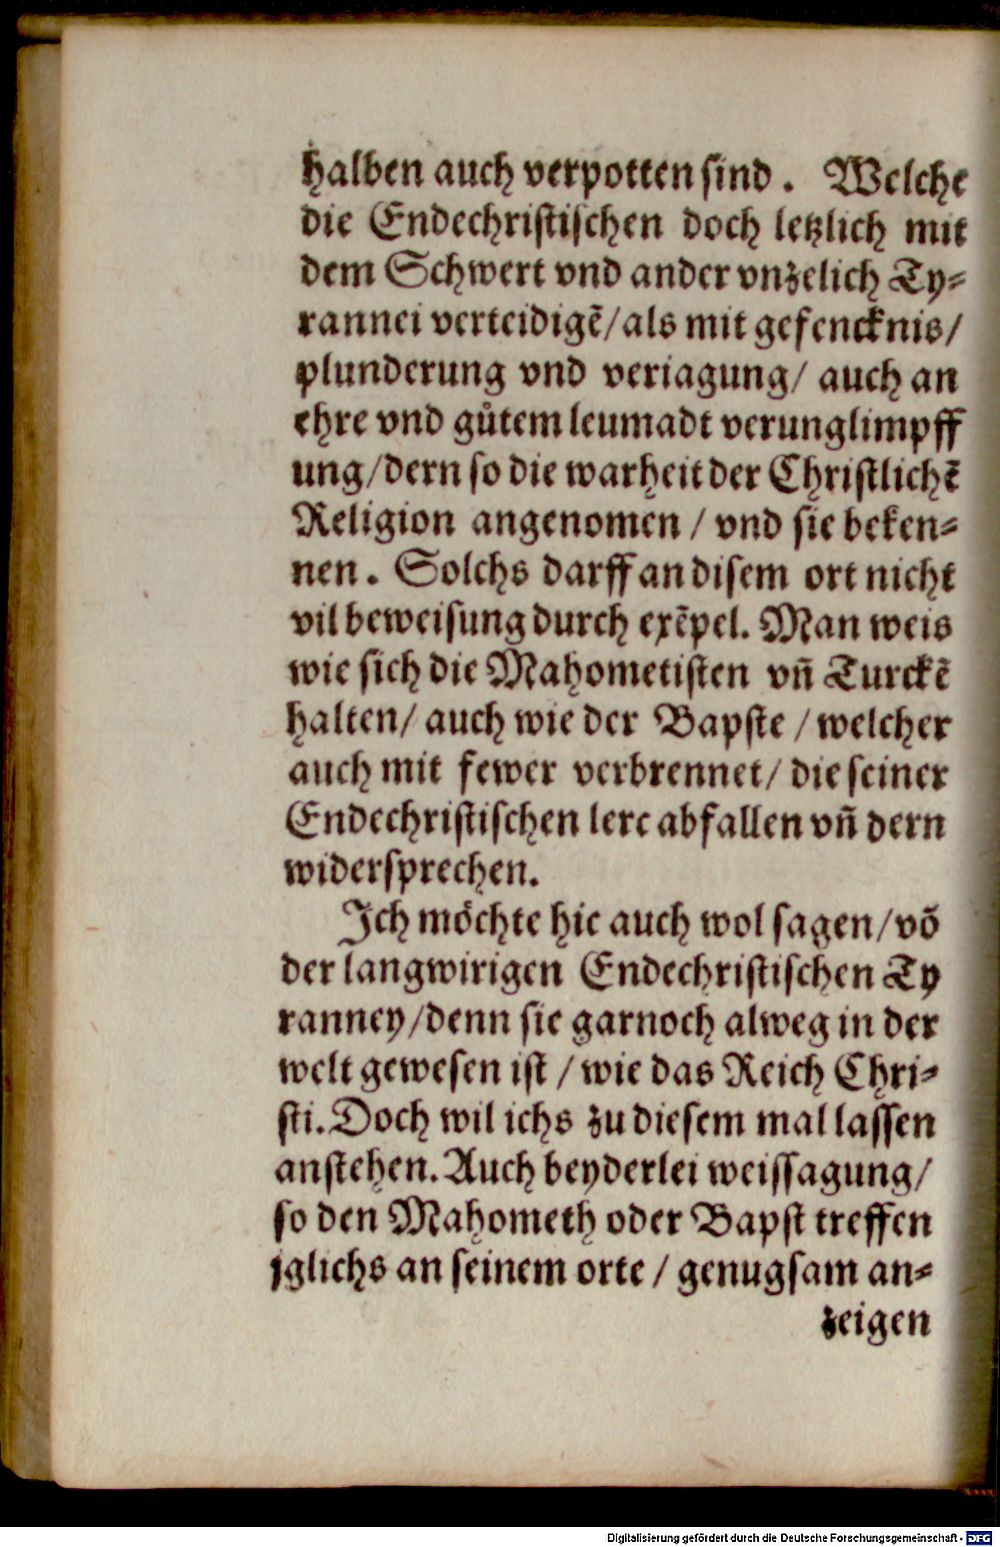 halben auch verpotten sind. Welche
die Endechristischen doch letzlich mit
dem Schwert vnd ander vnzelich Ty⸗
rannei verteidigẽ/als mit gefencknis/
plunderung vnd veriagung/ auch an
ehre vnd gůtem leumadt verunglimpff
ung/dern so die warheit der Christlichẽ
Religion angenomen / vnd sie beken⸗
nen. Solchs darff an disem ort nicht
vil beweisung durch exẽpel. Man weis
wie sich die Mahometisten vñ Turckẽ
halten/ auch wie der Bapste / welcher
auch mit fewer verbrennet/ die seiner
Endechristischen lere abfallen vñ dern
widersprechen.
Ich möchte hie auch wol sagen/võ
der langwirigen Endechristischen Ty
ranney/denn sie garnoch alweg in der
welt gewesen ist / wie das Reich Chri⸗
sti. Doch wil ichs zu diesem mal lassen
anstehen. Auch beyderlei weissagung/
so den Mahometh oder Bapst treffen
jglichs an seinem orte / genugsam an⸗
zeigen
Digitalisierung gefördert durch die Deutsche Forschungsgemeinschaft - DFG